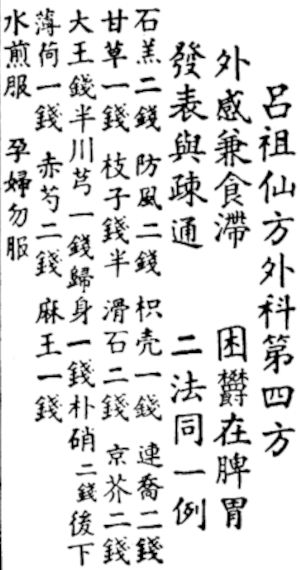 呂祖仙方外科第四方
外感兼食滯 困欝在脾胃
發表與疎通 二法同一例
石羔二錢 防風二錢 枳壳一錢 連喬二錢
甘草一錢 枝子錢半 滑石二錢 京芥二錢
大王錢半 川芎一錢 歸身一錢 朴硝二錢後下
薄荷一錢 赤芍二錢 麻王一錢
水煎服 孕婦勿服